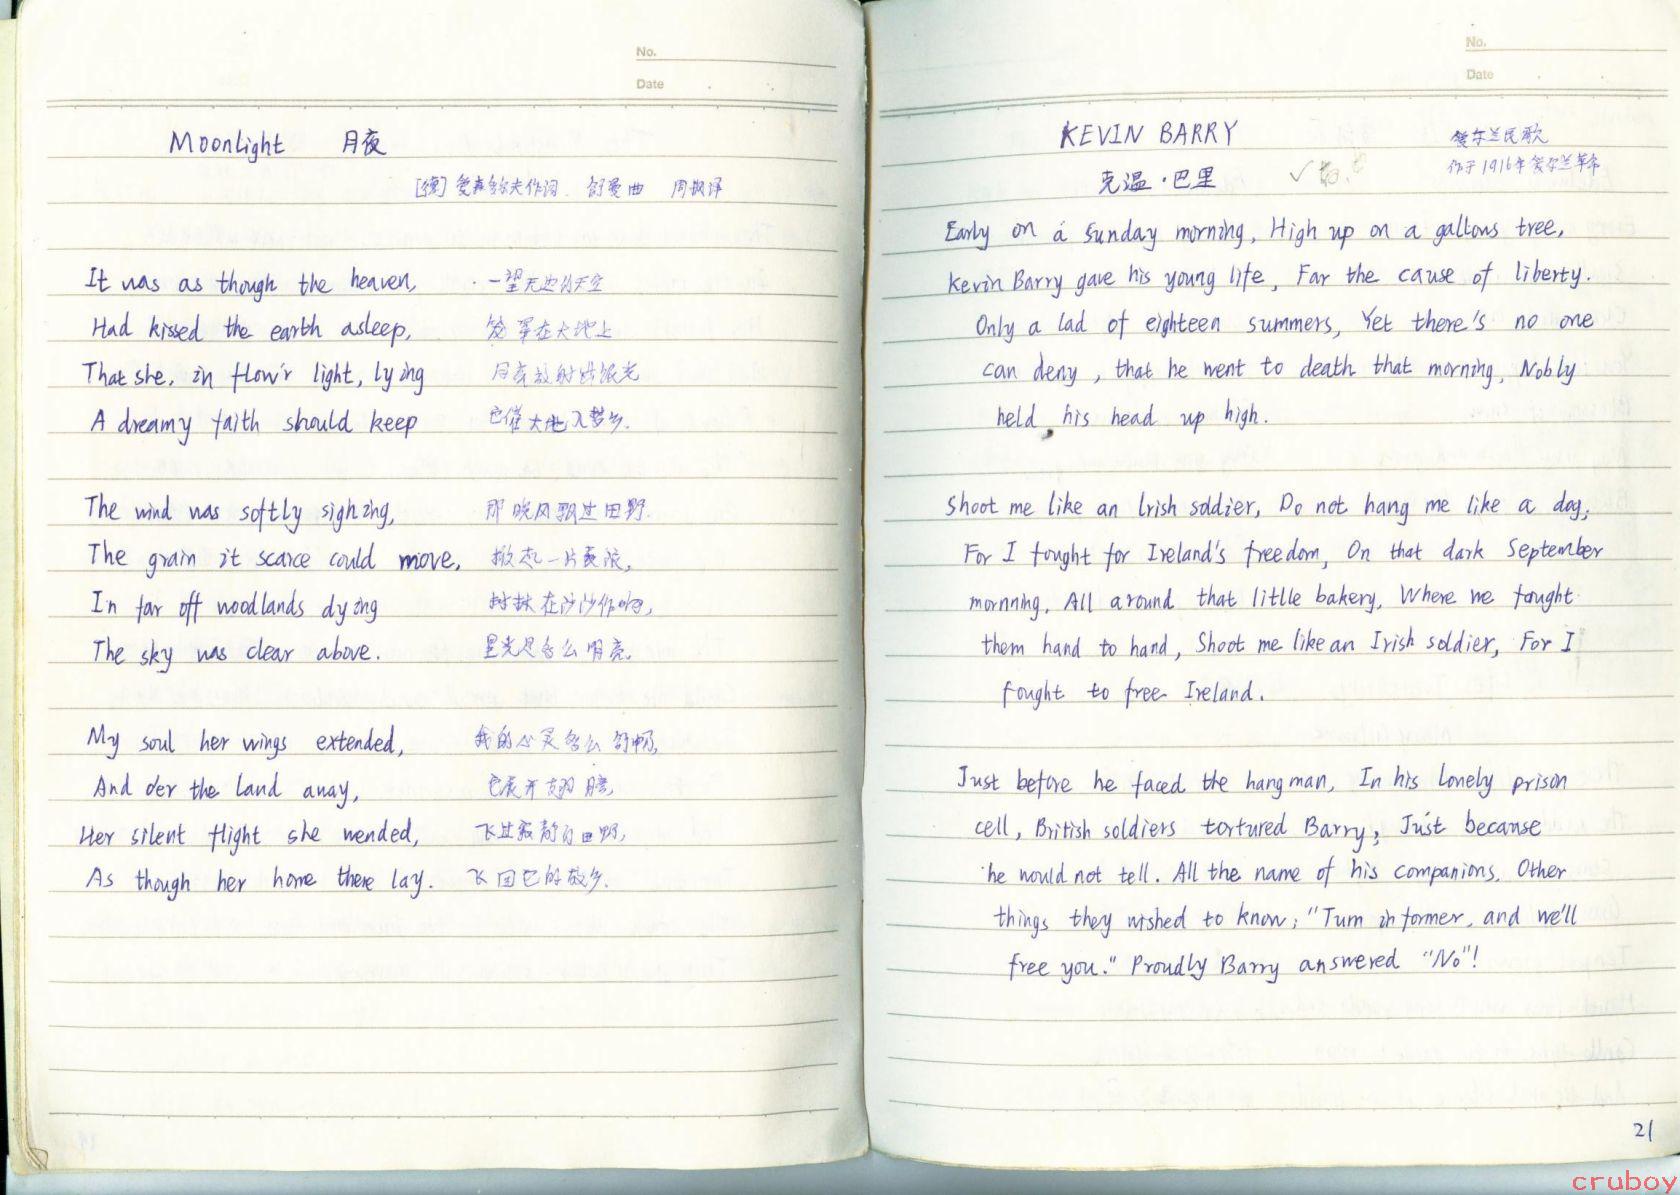 No.
Date
Moonlight 月夜
[德] 爱森多夫作词. 舒曼曲 周枫译
It was as though the heaven, 一望无边的天空
Had kissed the earth asleep, 笼罩在大地上
That she, in flow'r light, lying 月亮放射出银光
A dreamy faith should keep 它催大地入梦乡.
The wind was softly sighing, 那晚风飘过田野.
The grain it scarce could move, 掀起一片麦浪,
In far off woodlands dying 树林在沙沙作响,
The sky was clear above. 星光是多么明亮.
My soul her wings extended, 我的心灵多么舒畅,
And o'er the land away, 它展开翅膀,
Her silent flight she wended, 飞过寂静的田野,
As though her home there lay. 飞回它的故乡.
No.
Date
KEVIN BARRY 爱尔兰民歌
克温·巴里 作于1916年爱尔兰革命
Early on a Sunday morning, High up on a gallows tree,
Kevin Barry gave his young life, For the cause of liberty.
Only a lad of eighteen summers, Yet there's no one
can deny, that he went to death that morning, Nobly
held his head up high.
Shoot me like an Irish soldier, Do not hang me like a dog,
For I fought for Ireland's freedom, On that dark September
mornning, All around that little bakery, Where we fought
them hand to hand, Shoot me like an Irish soldier, For I
fought to free Ireland.
Just before he faced the hangman, In his lonely prison
cell, British soldiers tortured Barry, Just because
he would not tell. All the name of his companions, Other
things they wished to know; "Turn informer, and we'll
free you." Proudly Barry answered "No"!
21
cruboy